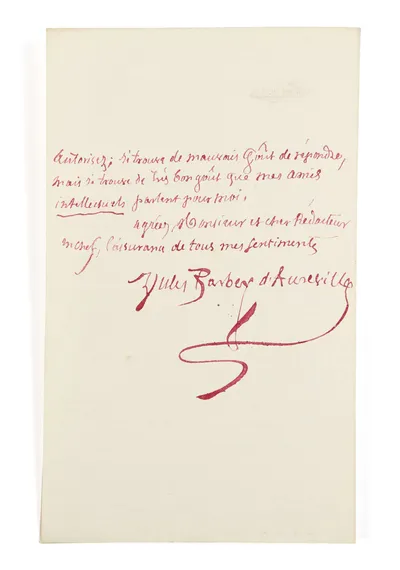 autorisez; je trouve de mauvais goût de répondre,
mais je trouve de très bon goût que mes amis
intellectuels parlent pour moi.
agréez, Monsieur et cher Rédacteur
en chef, l'assurance de tous mes sentiments
Jules Barbey d'Aurevilly